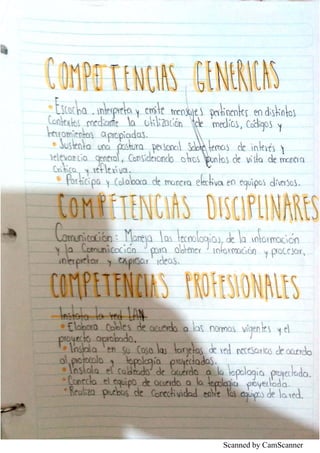 COMPETENCIAS GENERICAS
• Escucha, interpreta y emite mensajes pertinentes en distintos
Contextos mediante la utilización de medios, códigos y
herramientos apropiadas.
• Sustenta una postura personal sobre temas de interés y
relevancia general, Considerando otros puntos de vista de manera
Critica y reflexiva.
• Participa y colabora de manera efectiva en equipos diversos.
COMPETENCIAS DISCIPLINARES
Comunicación: Maneja las tecnologías, de la información
y la Comunicación para obtener información y procesar,
interpretar y expresar ideas.
COMPETENCIAS PROFESIONALES
Instala la red LAN.
• Elabora Cables de acuerdo a las normas vigentes y el
proyecto aprobado.
• Instala en su Caso las tarjetas de red necesarias de acuerdo
al protocolo y topología proyectadas.
• Instala el cableado de acuerdo a la topología proyectada.
• Conecta el equipo de acuerdo a la topología proyectada.
• Realiza pruebas de Conectividad entre los equipos de la red.
Scanned by CamScanner